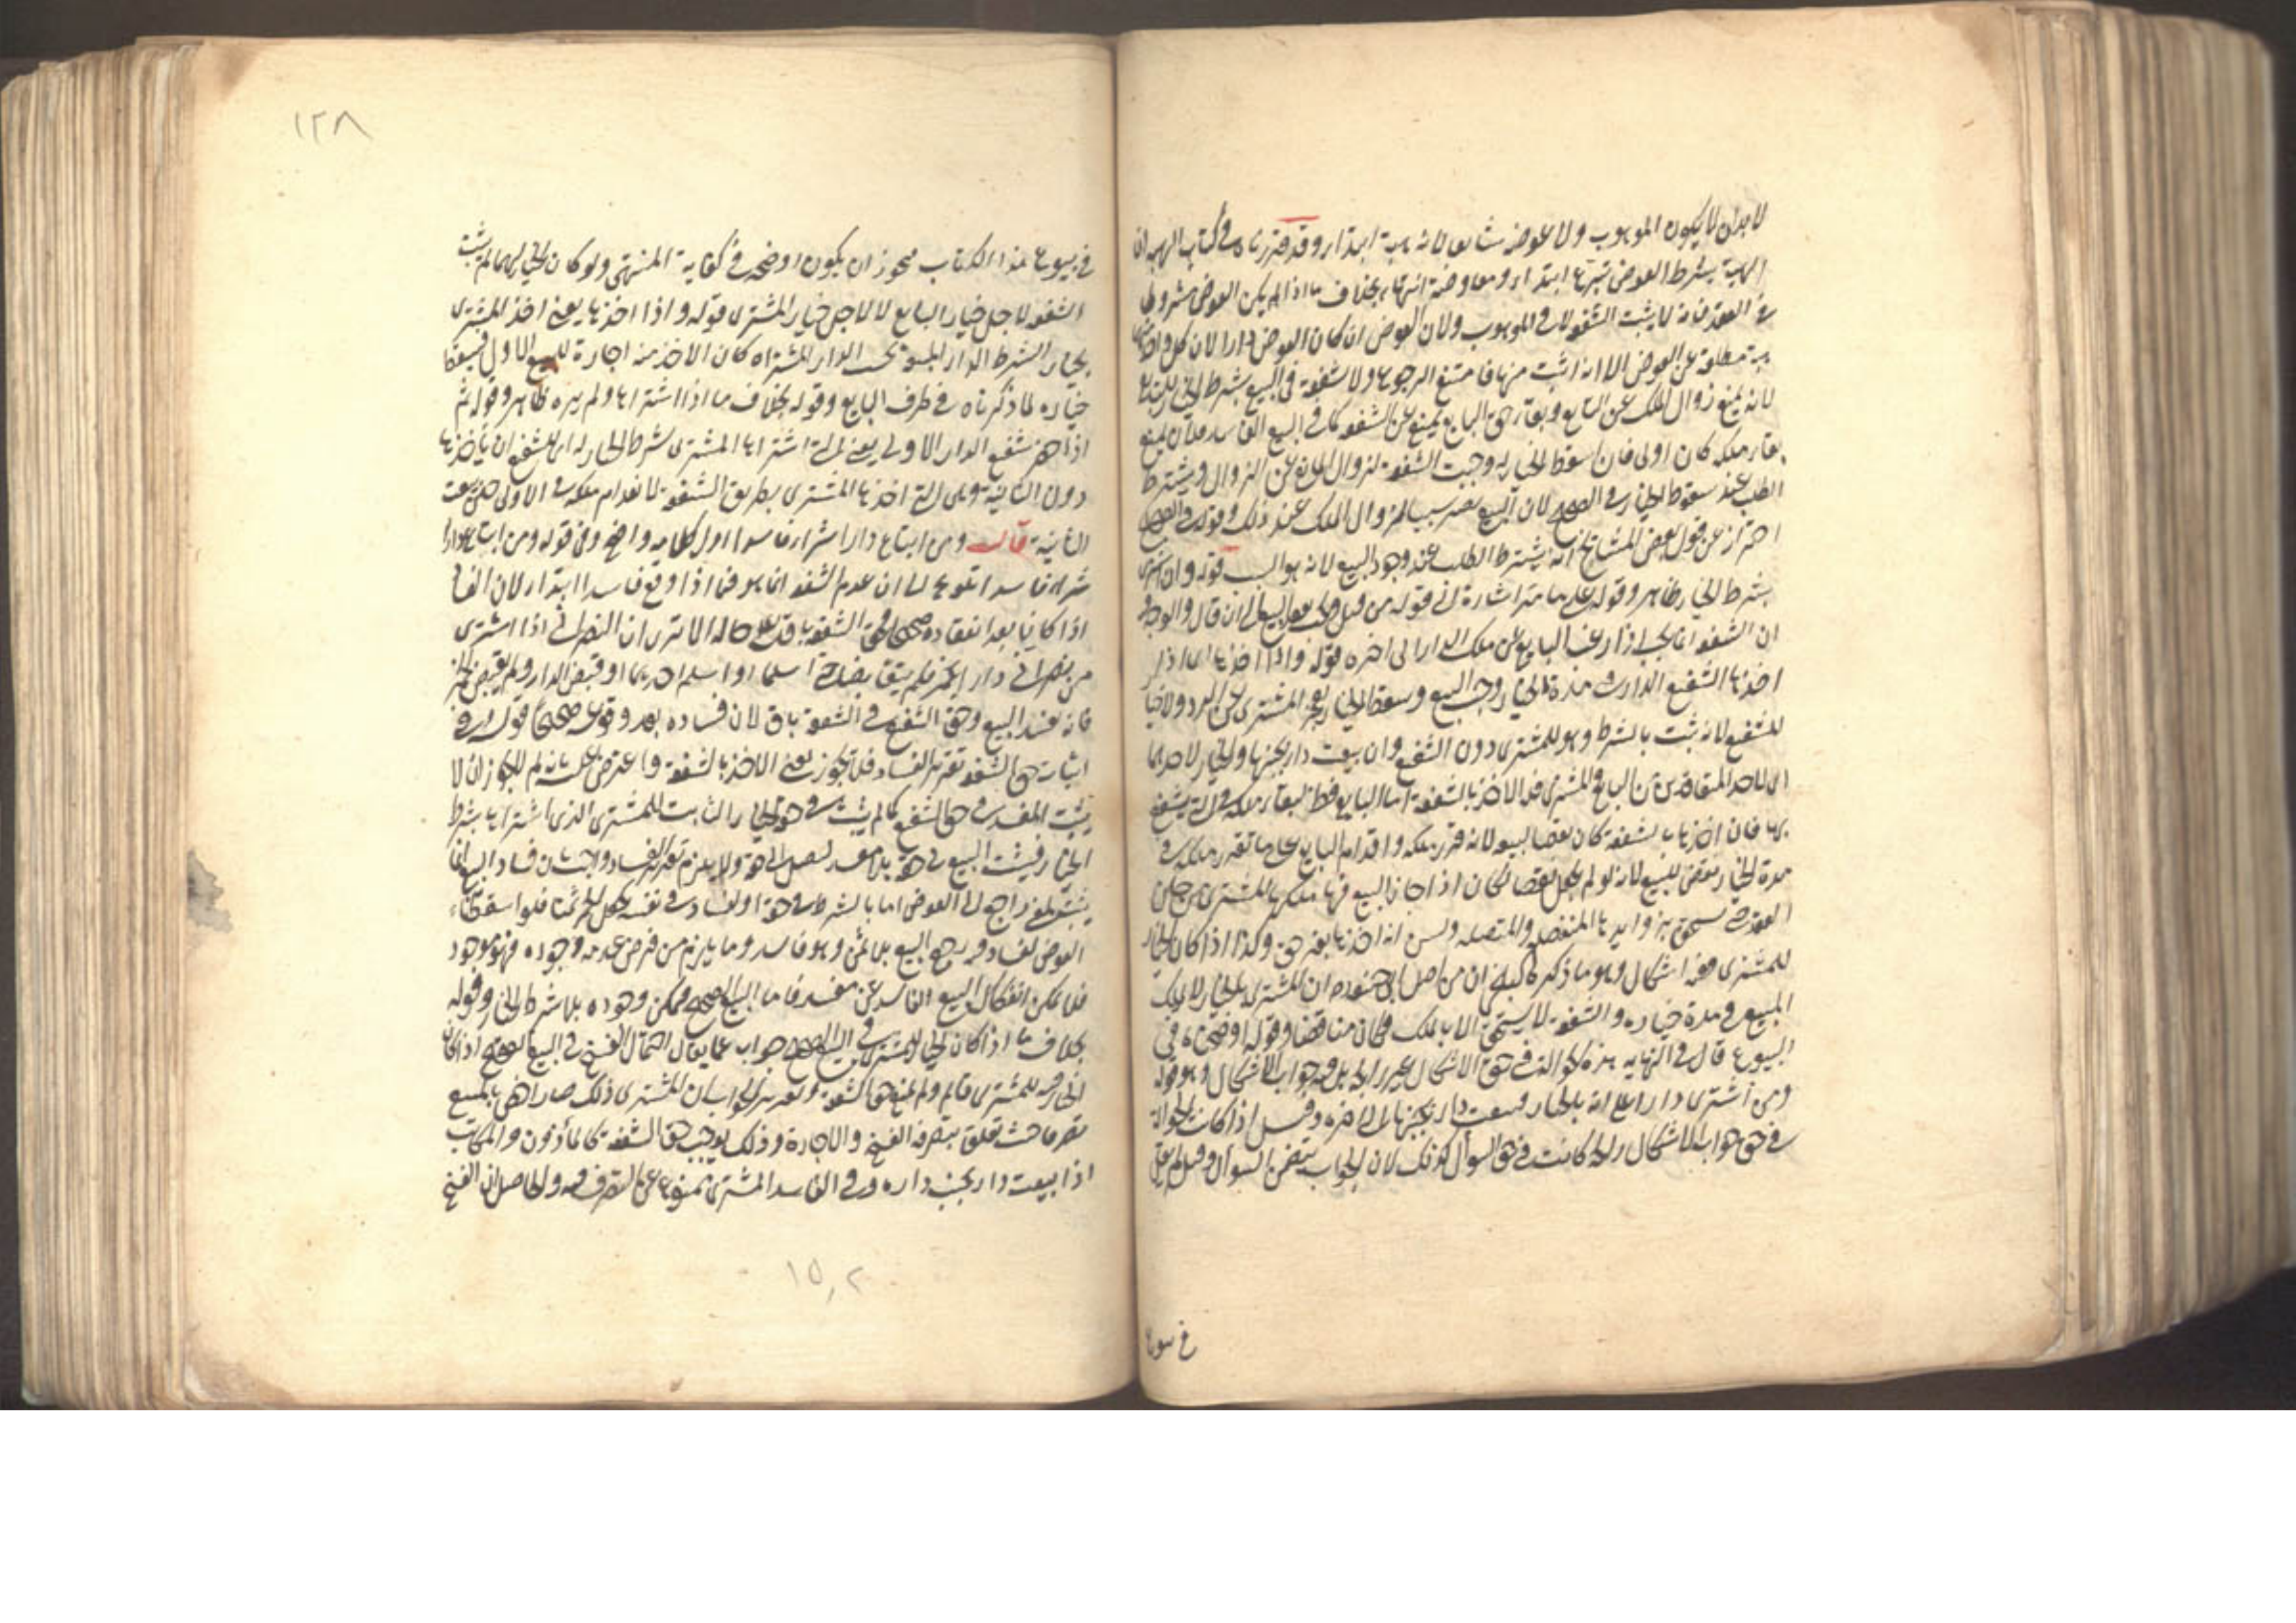 لا بد ان لا يكون الموهوب ولا عوضه شايعا لانه هبة ابتداء وقد قررناه في كتاب الهبة ان
الهبة بشرط العوض تبرع ابتداء ومعاوضة انتهاء بخلاف ما اذا لم يكن العوض مشروطا
في العقد فانه لا يثبت الشفعة لا في الموهوب ولا في العوض ان كان العوض دارا لان كل واحد منهما
هبة مطلقة عن العوض الا انه اثيب منها فامتنع الرجوع ولا شفعة في البيع بشرط الخيار للبايع
لانه يمنع زوال الملك عن البايع وبقاء حق البايع يمنع عن الشفعة كما في البيع الفاسد فلان يمنع
بقاء ملكه كان اولى فان اسقط الخيار وجبت الشفعة لزوال المانع عن الزوال ويشترط
الطلب عند سقوط الخيار في الصحيح لان البيع يصير سببا لزوال الملك عند ذلك وقوله في الصحيح
احتراز عن قول بعض المشايخ انه يشترط الطلب عند وجود البيع لانه هو السبب قوله وان اشترى
بشرط الخيار ظاهر وقوله على ما مر اشارة الى قوله من قبل
ان الشفعة انما يجب اذا رغب البايع عن ملك الدار الى اخره قوله واذا اخذها اي اذا
اخذها الشفيع الدار في مدة الخيار وجب البيع وسقط الخيار لعجز المشتري عن الرد ولا خيار
للشفيع لانه ثبت بالشرط وهو للمشتري دون الشفيع وان بيعت دار بجنبها والخيار لاحدهما
اي لاحد المتعاقدين من البايع والمشتري فله الاخذ بالشفعة اما البايع فظ لبقاء ملكه في التي يشفع
بها فان اخذها بالشفعة كان نقضا لبيعه لانه قرر ملكه واقدام البايع على ما تقرر ملكه في
مدة الخيار نقض للبيع لانه لو لم يجعل نقضا لكان اذا جاز البيع فيها ملكها المشتري من حين
العقد حتى يستحق بزوايدها المنفصلة والمتصلة وتبين انه اخذها بغير حق وكذا اذا كان الخيار
للمشتري وفيه اشكال وهو ما ذكره البلخي ان من اصل ابي حنيفة رح ان المشتري بالخيار لا يملك
المبيع في مدة خياره والشفعة لا يستحق الا بالملك فكان مناقضا وقوله اوضحناه في
البيوع قال في النهاية هذه الحوالة في حق الاشكال غير رايجة بل فيه جواب الاشكال وهو قوله
ومن اشترى دارا على انه بالخيار فبيعت دار بجنبها الى اخره وقيل اذا كانت الحوالة
في حق جواب الاشكال رايجة كانت في حق السؤال كذلك لان الجواب يتضمن السؤال وقيل لم يقل
في بيوع
١٢٨
في بيوع هذا الكتاب فيجوز ان يكون اوضحه في كفاية المنتهى ولو كان الخيار لهما لم يثبت
الشفعة لاجل خيار البايع لا لاجل خيار المشتري قوله واذا اخذها يعني اخذ المشتري
بخيار الشرط الدار المبيعة بجنب الدار المشتراة كان الاخذ منه اجازة للبيع الاول فيسقط
خياره لما ذكرناه في طرف البايع وقوله بخلاف ما اذا اشتراها ولم يره ظاهر وقوله ثم
اذا حضر شفيع الدار الاولى يعني التي اشتراها المشتري بشرط الخيار له اي للشفيع ان يأخذها
دون الثانية وهي التي اخذها المشتري بطريق الشفعة لانعدام ملكه في الاولى حين بيعت
الثانية قال ومن ابتاع دارا شراء فاسدا اول كلامه واضح وفي قوله ومن ابتاع دارا
شراء فاسدا تلويح الى ان عدم الشفعة انما هو فيما اذا وقع فاسدا ابتداء لان الفاسد
اذا كان بعد انعقاده صحيحا فحق الشفعة باق على حاله الا ترى ان النصراني اذا اشترى
من نصراني دارا بخمر فلم يتقابضا حتى اسلما او اسلم احدهما او قبض الدار ولم يقبض الخمر
فانه يفسد البيع وحق الشفيع في الشفعة باق لان فساده بعد وقوعه صحيحا قوله وفي
اثبات حق الشفعة تقرير الفساد فلا تجوز يعني الاخذ بالشفعة واعترض عليه بانه لم لا يجوز ان لا
يثبت المفسد في حق الشفيع كما لم يثبت في حقه الخيار الثابت للمشتري الذي اشتراها بشرط
الخيار فيثبت البيع في حقه بلا مفسد ليصل الى حقه ولا يلزم تقرير الفساد واجيب بان فساد البيع انما
يثبت لمعنى راجع الى العوض اما بالشرط في حقه او لفساد في نفسه كجعل الخمر ثمنا فلو اسقطنا
العوض لفساده يرجع البيع بلا ثمن وهو فاسد وما يلزم من فرض عدمه وجوده فهو موجود
فلا يمكن انفكاك البيع الفاسد عن مفسد فاما البيع الصحيح فيمكن وجوده بلا شرط الخيار وقوله
بخلاف ما اذا كان الخيار للمشتري في البيع الصحيح جواب عما يقال احتمال الفسخ في البيع الصحيح اذا كان
الخيار فيه للمشتري قايم ولم يمنع حق الشفعة وتقرير الجواب بان المشتري ذلك صار اخص بالمبيع
تصرفا حيث تعلق بتصرفه الفسخ والاجازة وذلك يوجب حق الشفعة كالمأذون والمكاتب
اذا بيعت دار بجنب داره وفي الفاسد المشتري ممنوع عن التصرف فيه والحاصل ان الفسخ